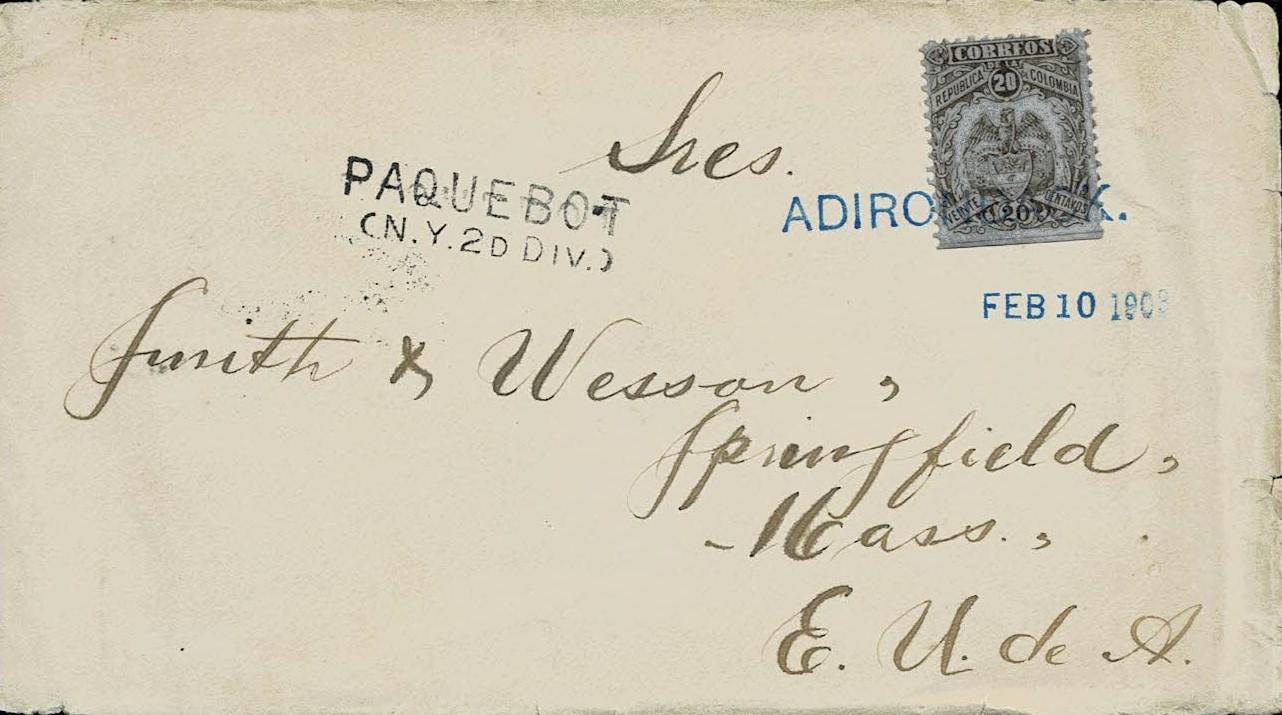 CORREOS
DE LA
REPUBLICA 20 DE COLOMBIA
VEINTE 20 CENTAVOS
Sres.
PAQUEBOT
(N.Y. 2D DIV.)
ADIRO K.
FEB 10 190
Smith & Wesson,
Springfield,
Mass.,
E. U. de A.